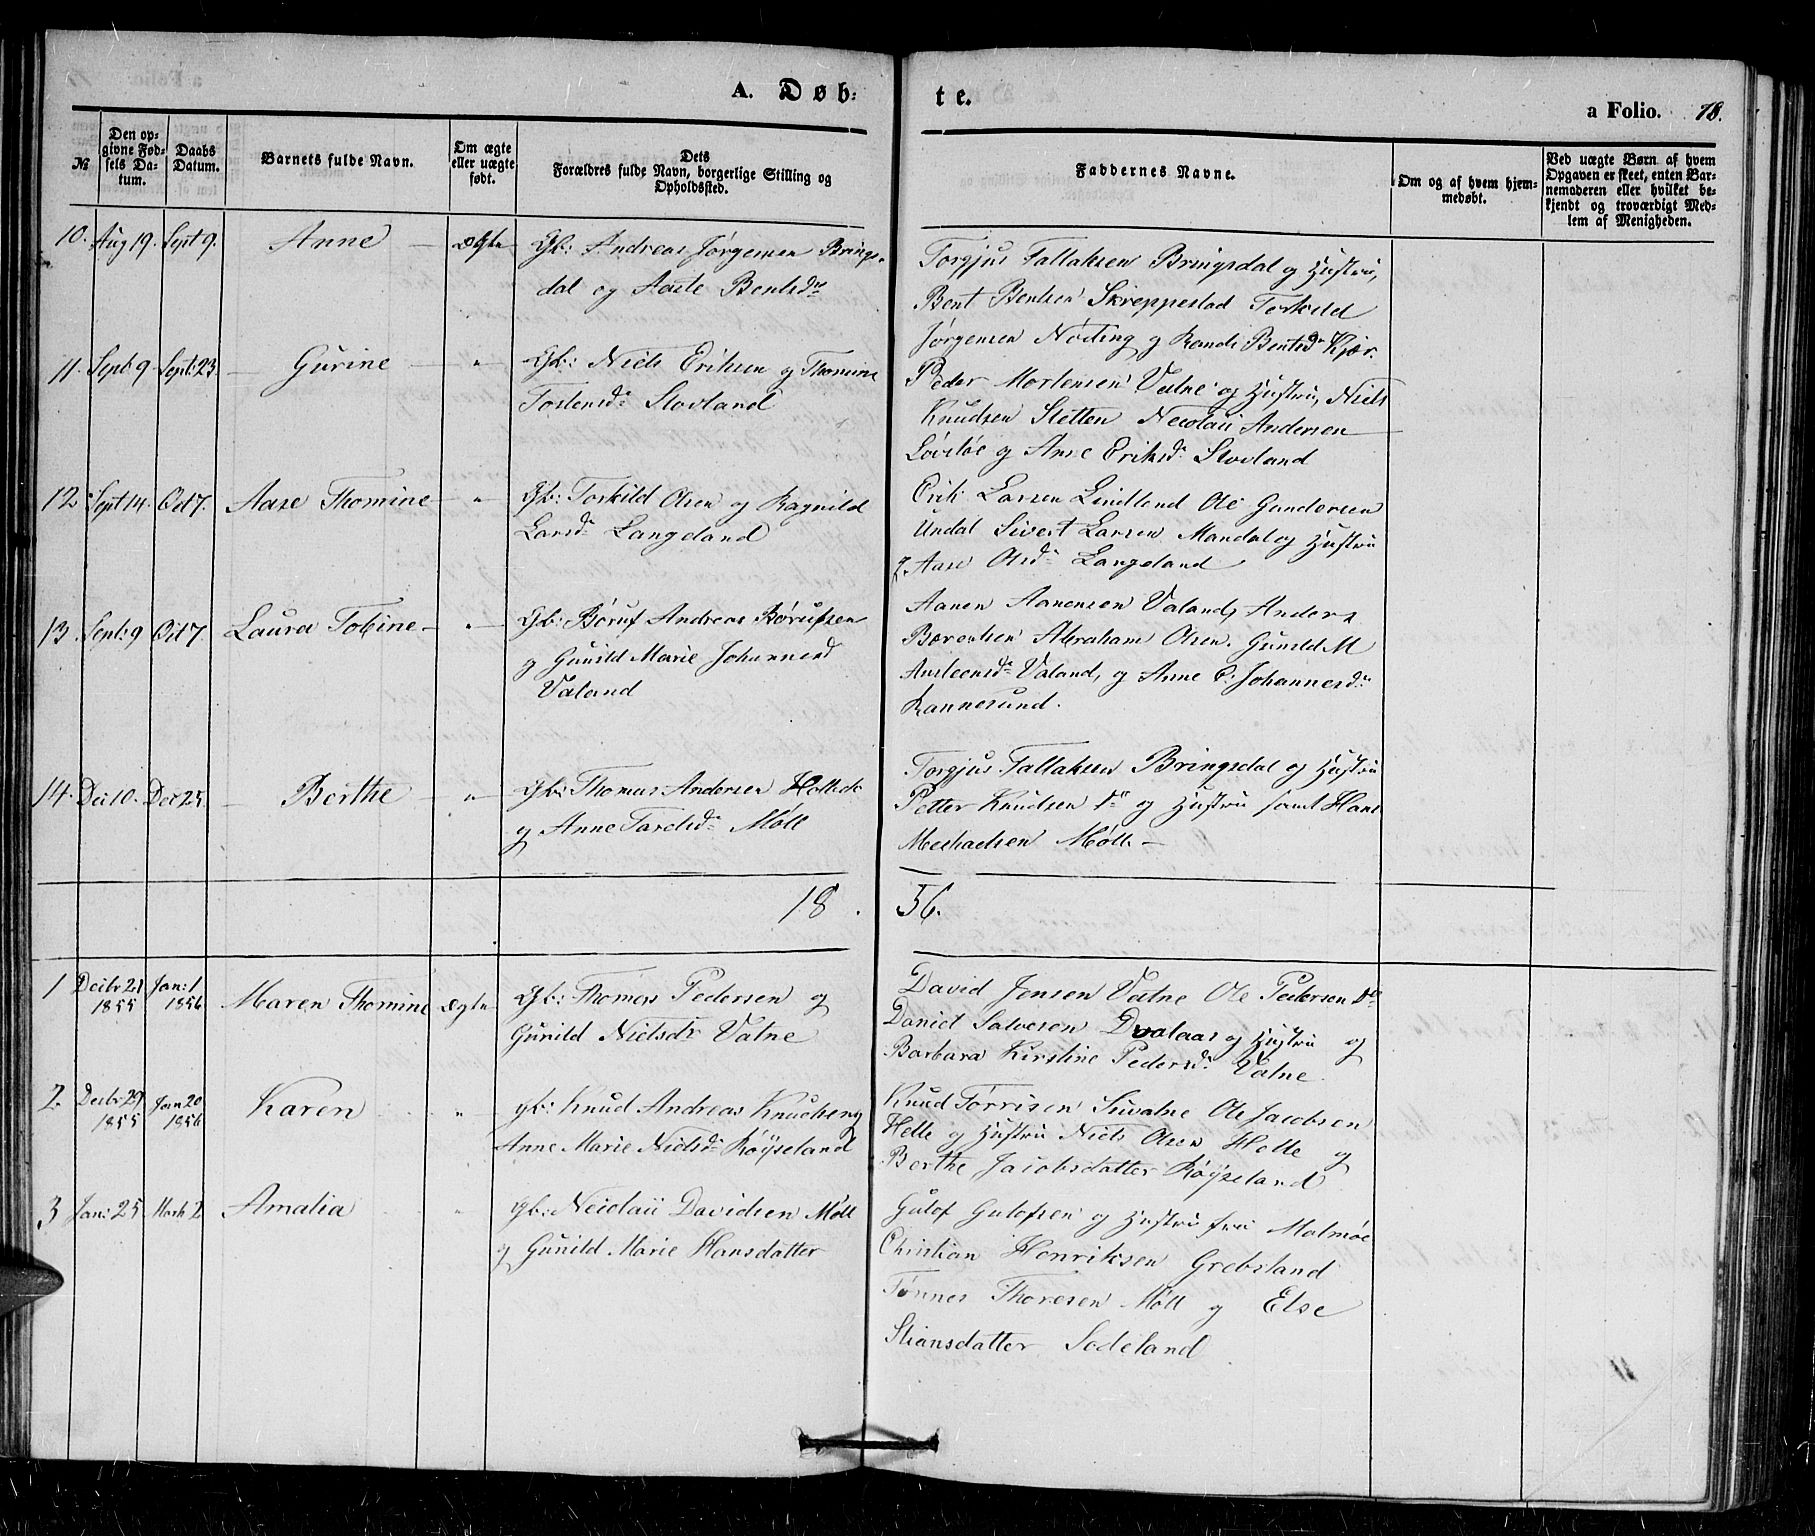 A. Døb:
te.
a Folio. 18.
№
Den op-
givne Fød-
sels Da-
tum.
Daabs
Datum.
Barnets fulde Navn.
Om ægte
eller uægte
født.
Dets
Forældres fulde Navn, borgerlige Stilling og
Opholdssted.
Faddernes Navne.
Om og af hvem hjem-
medøbt.
Ved uægte Børn af hvem
Opgaven er skeet, enten Bar-
nemoderen eller hvilket be-
kjendt og troværdigt Med-
lem af Menigheden.
10. Aug 19. Sept 9. Anne — ægte Gb: Andreas Jørgensen Brings-
dal og Aaste Bentsdr
Torgjus Tallaksen Bringsdal og Hustru,
Bent Bentsen Skreppestad Torkild
Jørgensen Nøding og Rande Bentsdr Kjær.
11. Sept: 9 Sept: 23 — Gurine — " Gb: Niels Eriksen og Thomine
Tostensdr Stovland
Peder Mortensen Valne og Hustru, Niels
Knudsen Sletten Nicolai Andersen
og Ane Eriksdr Stovland
12. Sept 14. Oct 7. Aase Thomine — " Gb: Torkild Olsen og Ragnild
Larsdr Langeland
Erik Larsen Lindland Ole Gundersen
Undal Sivert Larsen Mandal og Hustru
og Aase Olsdr Langeland
13. Sept: 9 Oct 7. Laura Tobine — " Gb: Børuf Andreas Børufsen
og Gunild Marie Johannesd
Valand
Aanen Aanensen Valand, Anders
Berentsen Abraham Olsen. Gunild M
Valand, og Anne C. Johannesdr
Rannesund.
14. Dec 10. Dec 25 — Berthe — " Gb: Thomas Andersen
og Anne Taraldsdr Møll
Torgjus Tallaksen Bringsdal og Hustru
Petter Knudsen do og Hustru samt Hans
Mechaelsen Møll —
18. 56.
1 Decbr 21 Jan: 1
1855 1856
Maren Thomine ægte Gb: Thomas Pedersen og
Gunild Nielsdr Valne
David Jensen Valne Ole Pedersen do
Daniel Salvesen Dvalaas og Hustru og
Barbara Kirstine Pedersdr Valne
2. Decbr 29 Jan 20
1855 1856
Karen " gb: Knud Andreas Knudsen og
Anne Marie Nielsdr Røyseland
Knud Torrisen Ole Jacobsen
Helle og Hustru Niels Olsen Helle og
Berthe Jacobsdatter Røyseland
3 Jan: 25 March 2 Amalia " gb: Neiolaii Davidsen Møll
og Gunild Marie Hansdatter
Gulof Gulofsen og Hustru fra Malmøe
Christian Henriksen Grebstand
Tønnes Thoresen Møll og Else
Stiansdatter Sodeland